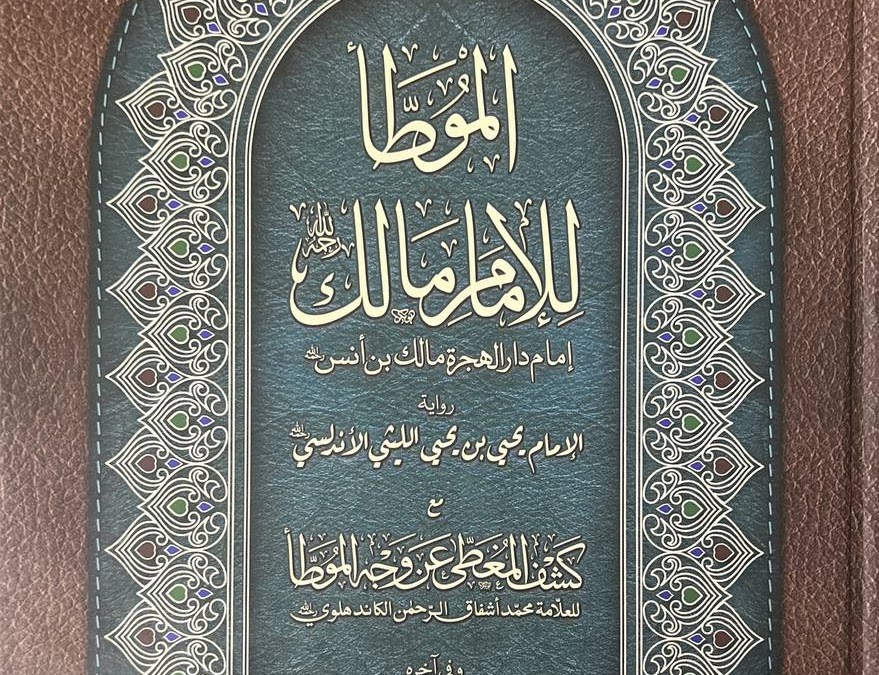 الموطّأ
للإمام مالك رحمه الله
إمام دار الهجرة مالك بن أنس رحمه الله
رواية
الإمام يحيى بن يحيى الليثي الأندلسي رحمه الله
مع
كَشْف المُغَطّى عَن وَجْه المُوطّأ
للعلّامة محمّد أشفاق الرحمٰن الكاندهلوي رحمه الله
وفي آخره